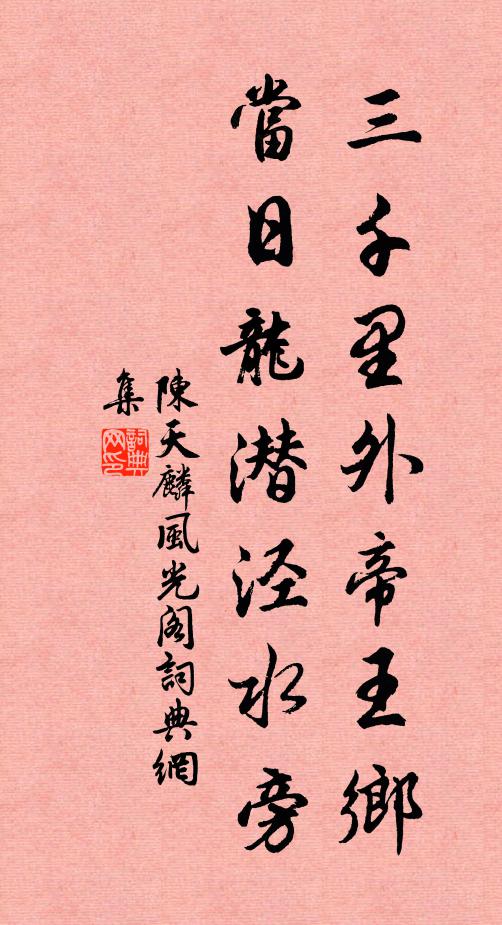 三千里外帝王鄉
當日龍潛泾水旁
陳天麟風光閣詞典網
集
詞典网印